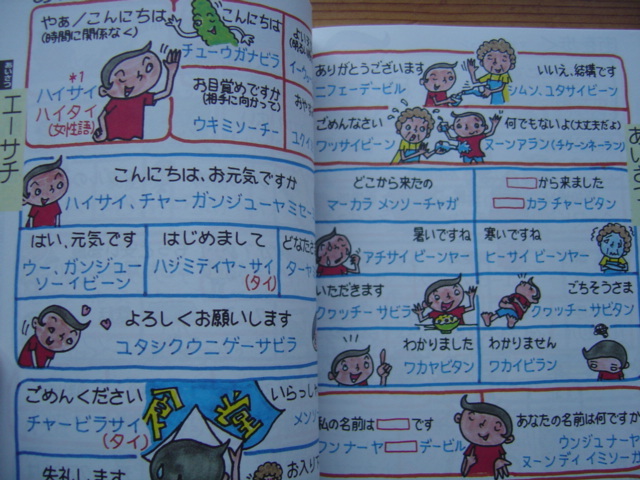 あいさつ
エーサチ
やぁ/こんにちは
(時間に関係なく)
*1
ハイサイ
ハイタイ
(女性語)
こんにちは
チューウガナビラ
お目覚めですか
(相手に向かって)
ウキミソーチー
こんにちは、お元気ですか
ハイサイ、チャー ガンジューヤミセー
はい、元気です
ウー、ガンジュー
ソーイビーン
はじめまして
ハジミティヤーサイ
(タイ)
どなた
ターヤ
よろしくお願いします
ユタシクウニゲーサビラ
ごめんください
チャービラサイ
(タイ)
食堂
いらっし
メン
失礼します
お入り
ありがとうございます
ニフェーデービル
いいえ、結構です
シムン、ユタサイビーン
ごめんなさい
ワッサイビーン
何でもないよ(大丈夫だよ)
ヌーンアラン(チケーンネーラン)
どこから来たの
マーカラ メンソーチャガ
から来ました
カラ チャービタン
暑いですね
アチサイ ビーンヤー
寒いですね
ヒーサイ ビーンヤー
いただきます
クヮッチー サビラ
ごちそうさま
クヮッチー サビタン
わかりました
ワカヤビタン
わかりません
ワカイビラン
私の名前は です
ワン ナーヤ デービル
あなたの名前は何ですか
ウンジュ ナーヤ
ヌーンディ イミソーガ